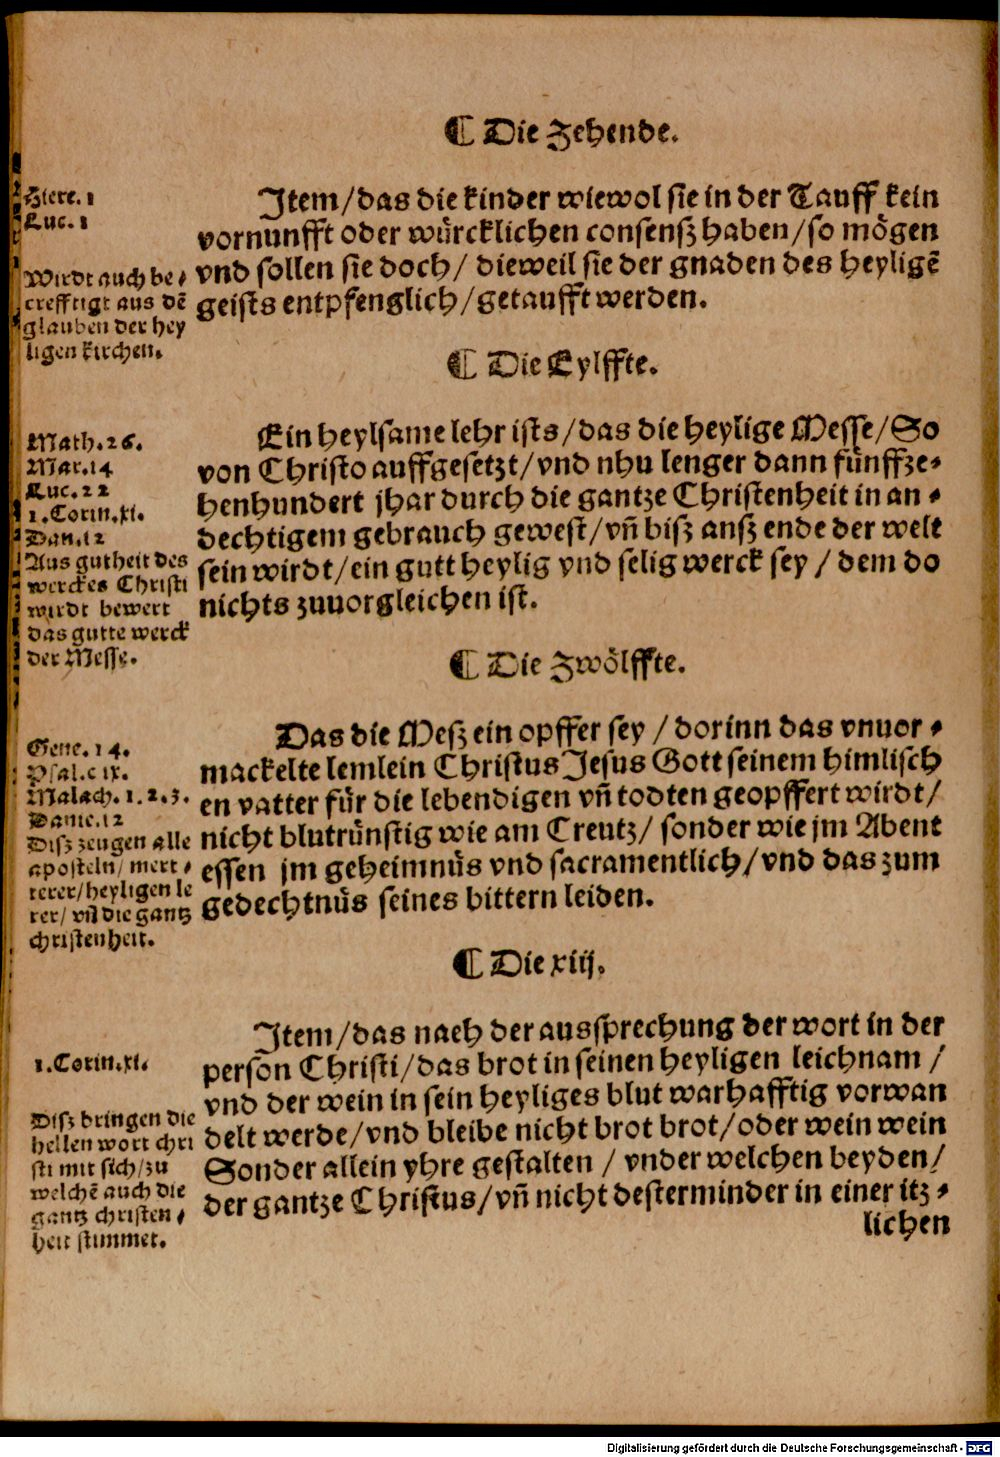 ¶ Die Zehende.
Hiere. 1
Luc. 1
Wirdt auch be⸗
crefftigt aus dẽ
glauben der hey
ligen kirchen.
Item/das die kinder wiewol sie in der Tauff kein
vornunfft oder wuͤrcklichen consensz haben/so moͤgen
vnd sollen sie doch/ dieweil sie der gnaden des heyligẽ
geists entpfenglich/getaufft werden.
¶ Die Eylffte.
Math.26.
Mar.14
Luc.22
1.Corin.xi.
Dan.12
Aus gutheit des
werckes Christi
wirdt bewert
das gutte werck
der Messe.
Ein heylsame lehr ists/das die heylige Messe/So
von Christo auffgesetzt/vnd nhu lenger dann fuͤnffze⸗
henhundert jhar durch die gantze Christenheit in an⸗
dechtigem gebrauch gewest/vñ bisz ansz ende der welt
sein wirdt/ein gutt heylig vnd selig werck sey / dem do
nichts zuuorgleichen ist.
¶ Die Zwoͤlffte.
Gene.14.
Psal.c ix.
Malach.1.2.3.
Danie.12
Disz zeugen alle
aposteln/ mert⸗
terer/heyligen le
rer/ vñ die gantz
christenheit.
Das die Mesz ein opffer sey / dorinn das vnuor⸗
mackelte lemlein Christus Jesus Gott seinem himlisch
en vatter fuͤr die lebendigen vñ todten geopffert wirdt/
nicht blutruͤnstig wie am Creutz/ sonder wie jm Abent
essen jm geheimnuͤs vnd sacramentlich/vnd das zum
gedechtnuͤs seines bittern leiden.
¶ Die xiij.
1.Corin.xi.
Disz bringen die
hellen wort chri
sti mit sich/zu
welchẽ auch die
gantz christen⸗
heit stimmet.
Item/das nach der aussprechung der wort in der
person Christi/das brot in seinen heyligen leichnam /
vnd der wein in sein heyliges blut warhafftig vorwan
delt werde/vnd bleibe nicht brot brot/oder wein wein
Sonder allein yhre gestalten / vnder welchen beyden/
der gantze Christus/vñ nicht desterminder in einer itz⸗
lichen
Digitalisierung gefördert durch die Deutsche Forschungsgemeinschaft - DFG